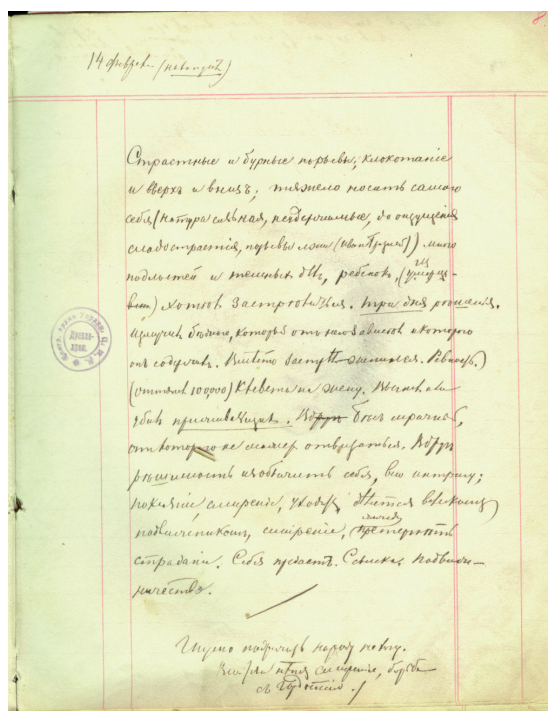 8.
14 февраля (на концѣ)
Страстные и бурные порывы, клокотаніе
и вверхъ и внизъ; тяжело носить самого
себя (натура сильная, неудержимые, до ощущенія
сладострастія, порывы лжи (Иванъ Грозный)) много
подлостей и темныхъ дѣлъ, ребенокъ, (
) хотѣлъ застрѣлиться. Три дня рѣшался.
Измучилъ бѣднаго, который отъ него зависѣлъ и котораго
онъ содержалъ. Вмѣсто застрѣл. женился. Ревность.
(оттягалъ 100000) Клевета на жену. Выгналъ или
убилъ приживальщика. Вдругъ Бѣсъ мрачный,
отъ котораго не можетъ отвязаться. Вдругъ
рѣшимость изобличить себя, всю интригу;
покаяніе, смиреніе, уходитъ, дѣлается великимъ
подвижникомъ, смиреніе, жажда претерпѣть
страданіе. Себя предаетъ. Ссылка. Подвижни-
ничество.
Глупо подражать народу не могу.
смиреніе, борьба
съ гордостію.